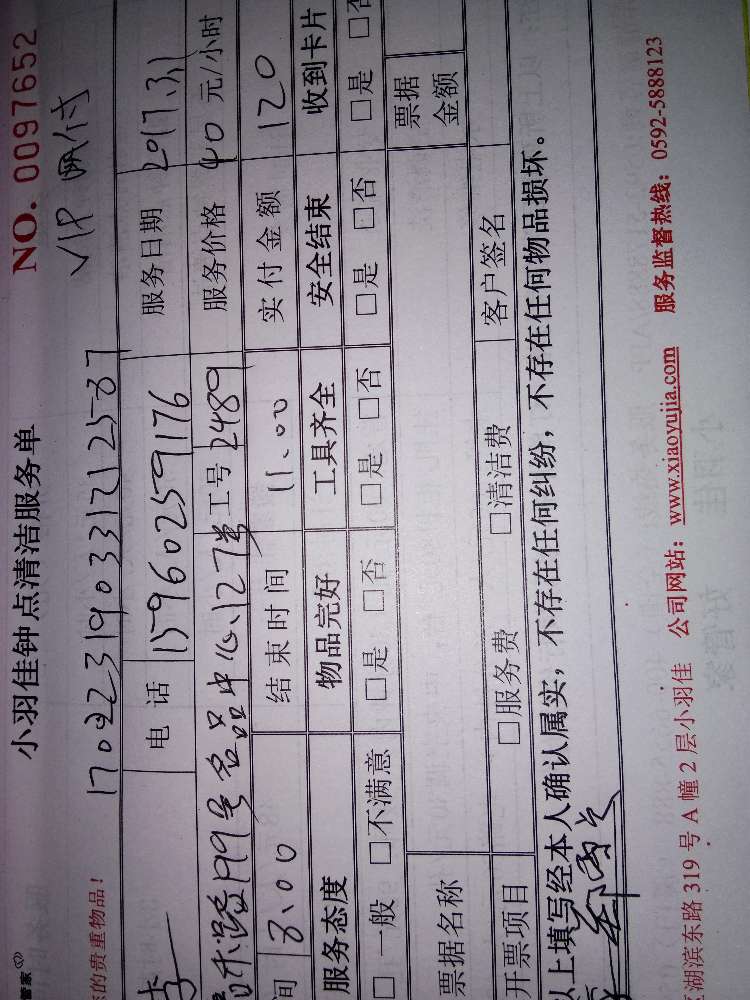 管家
小羽佳钟点清洁服务单 NO. 0097652
的贵重物品！ VIP 网付
170223190331212587
李 电 话 15960259176 服务日期 2017.3.1
路199号名品中心127单 工号 2489 服务价格 40 元/小时
间 8.00 结束时间 11.00 实付金额 120
服务态度 物品完好 工具齐全 安全结束 收到卡片
□ 一般 □不满意 □是 □否 □是 □否 □是 □否 □是 □否
票据名称 票据金额
开票项目 □服务费 □清洁费 客户签名
以上填写经本人确认属实，不存在任何纠纷，不存在任何物品损坏。
湖滨东路 319 号 A 幢 2 层小羽佳 公司网站：www.xiaoyujia.com 服务监督热线：0592-5888123